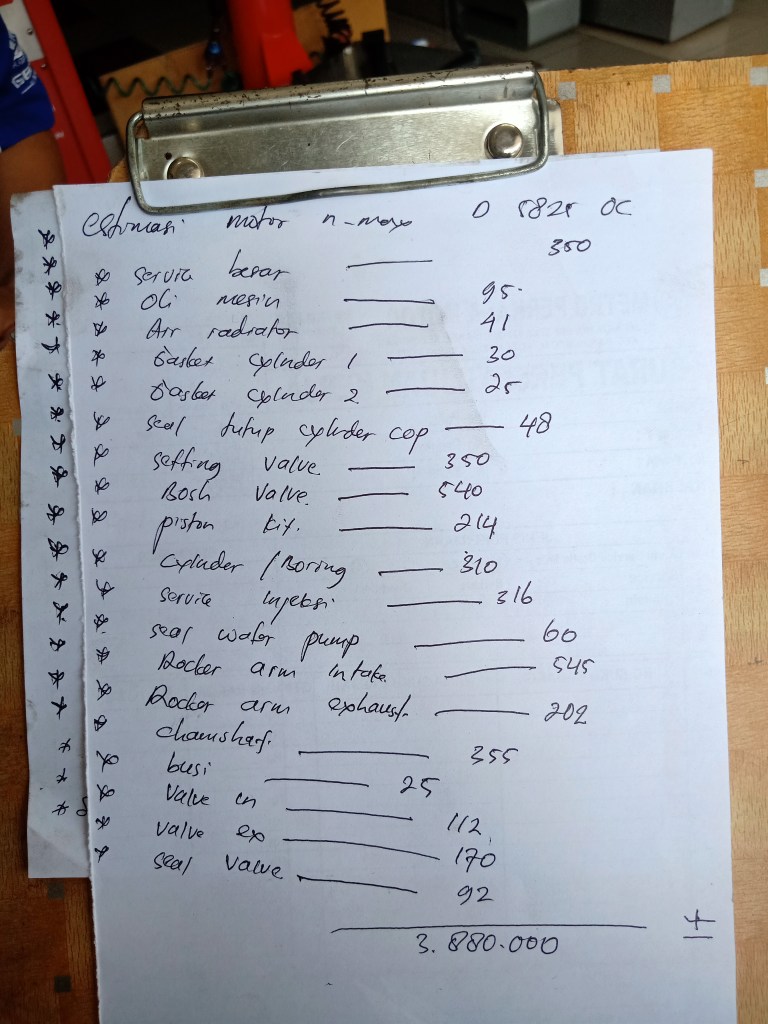 estimasi motor n-max D 5825 OC
* servis besar — 350
* Oli mesin — 95
* Air radiator — 41
* Gasket cylinder 1 — 30
* Gasket cylinder 2 — 25
* seal tutup cylinder cop — 48
* setting valve — 350
* Bosh valve — 540
* piston kit. — 214
* Cylinder / Boring — 310
* servis injeksi — 316
* seal water pump — 60
* Rocker arm intake — 545
* Rocker arm exhaust. — 202
* chamshaft. — 355
* busi — 25
* valve in — 112
* valve ex — 170
* seal valve — 92
+
3.880.000